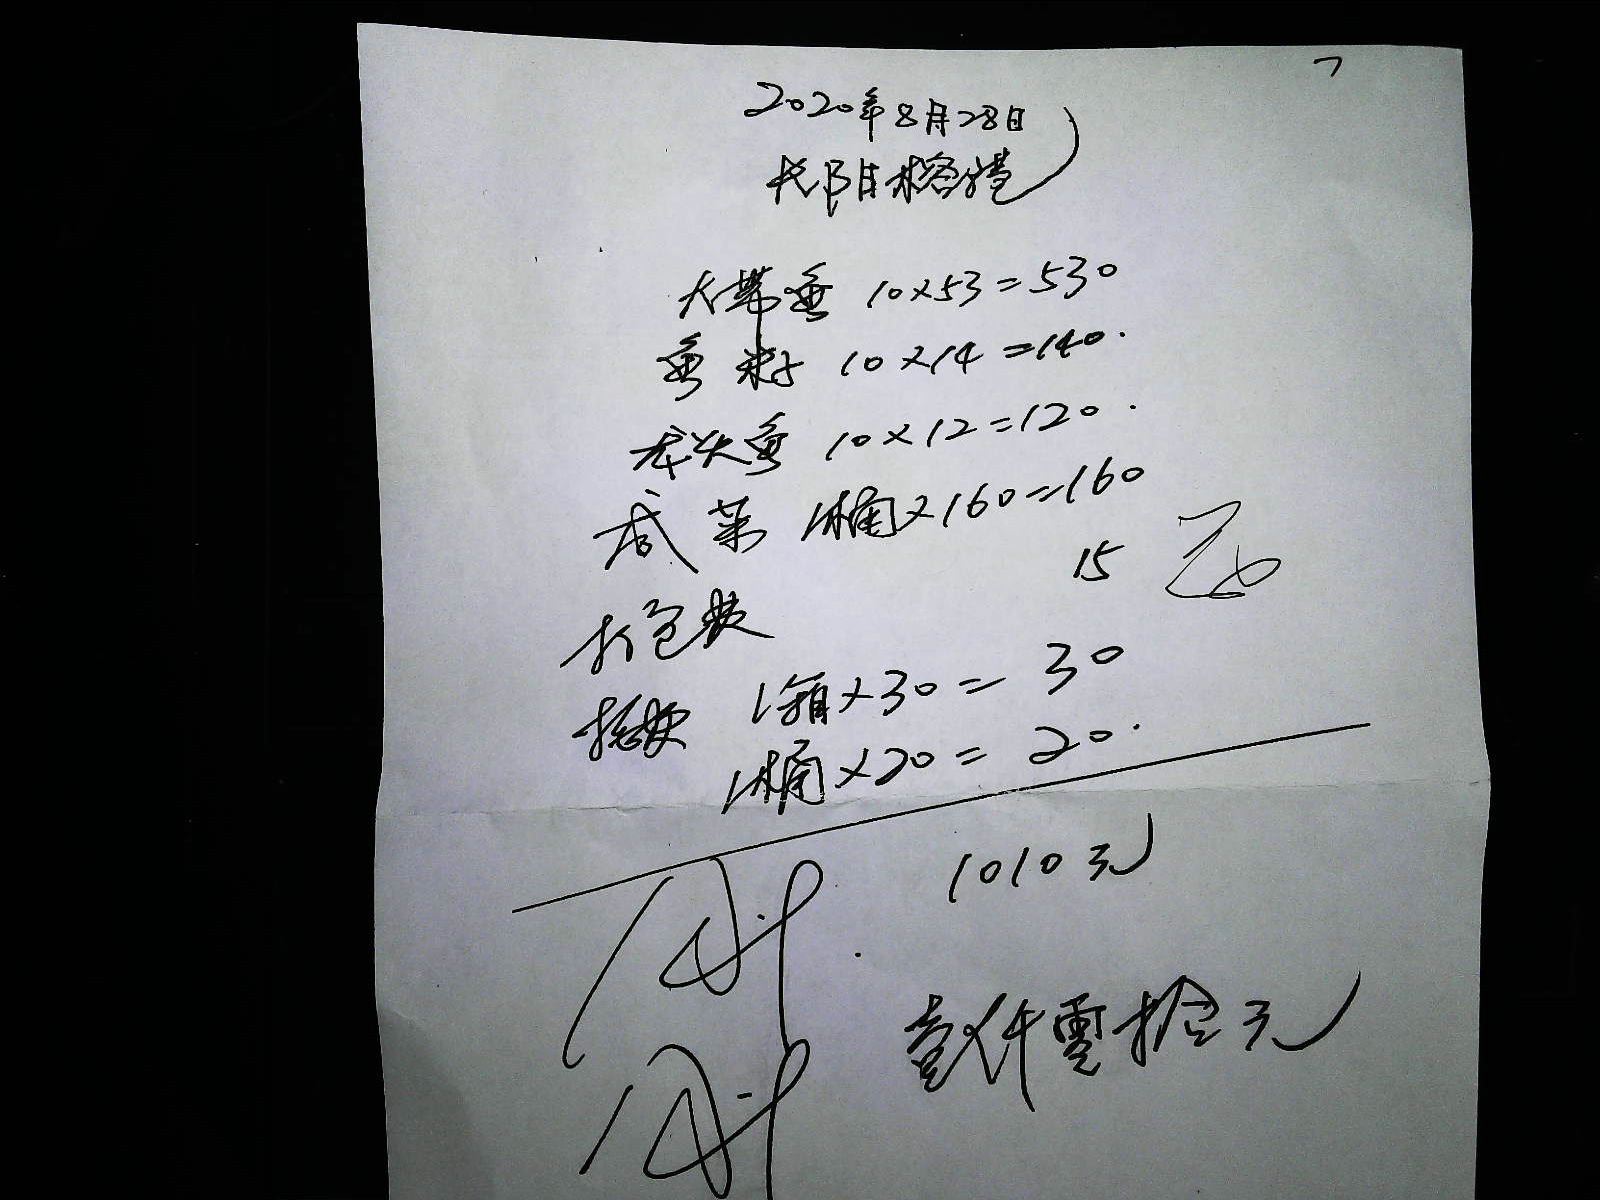 2020年8月28日
长阳榕港
大带鱼 10×53=530
鱼籽 10×14=140.
龙头鱼 10×12=120.
咸菜 1桶×160=160
15
打包费
1箱×30=30
1桶×20=20.
1010元
壹仟零拾元